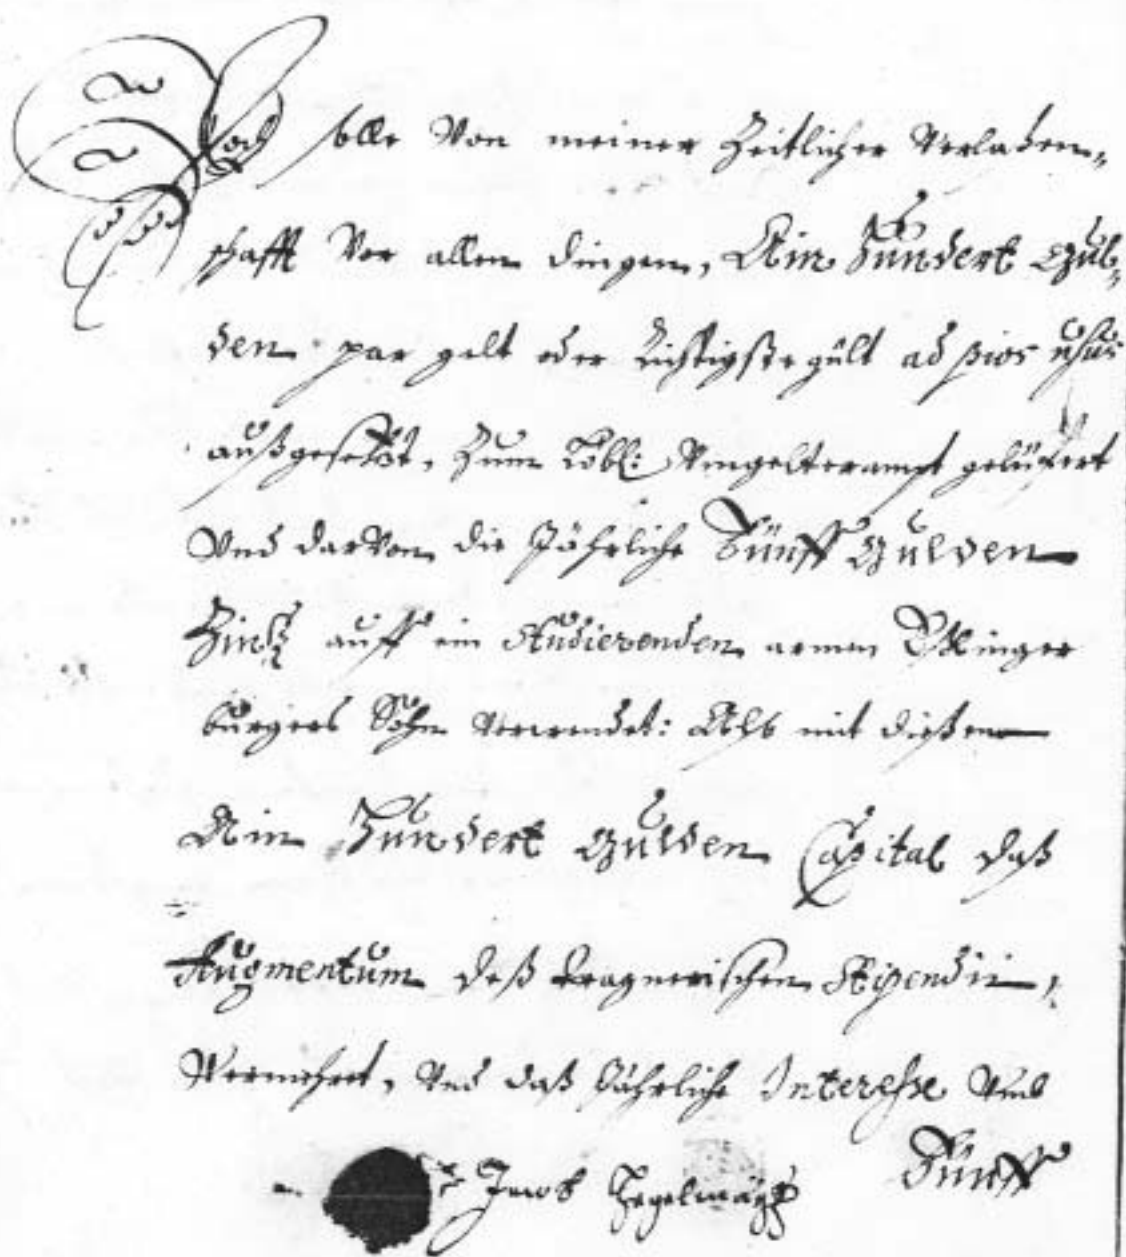 Noch solle Von meiner Zeitlicher Verlaßen„
schafft Vor allen dingen, Ain Hundert Gul„
den par gelt oder Richtigste gült ad pios usus
außgesetzt, Zum Löbl: Umgelterampt gelüfert
Und darVon die Jährliche Fünff Gulden
Zinß auff ein Studierenden armen Eßlinger
burgers Sohn verwendet: Alß mit dießem
Ain Hundert Gulden Capital daß
Augmentum deß Wagnerischen Stipendii,
Vermehret, Und daß Jährliche Interesse Umb
Fünff
Jacob Hegelmäyr